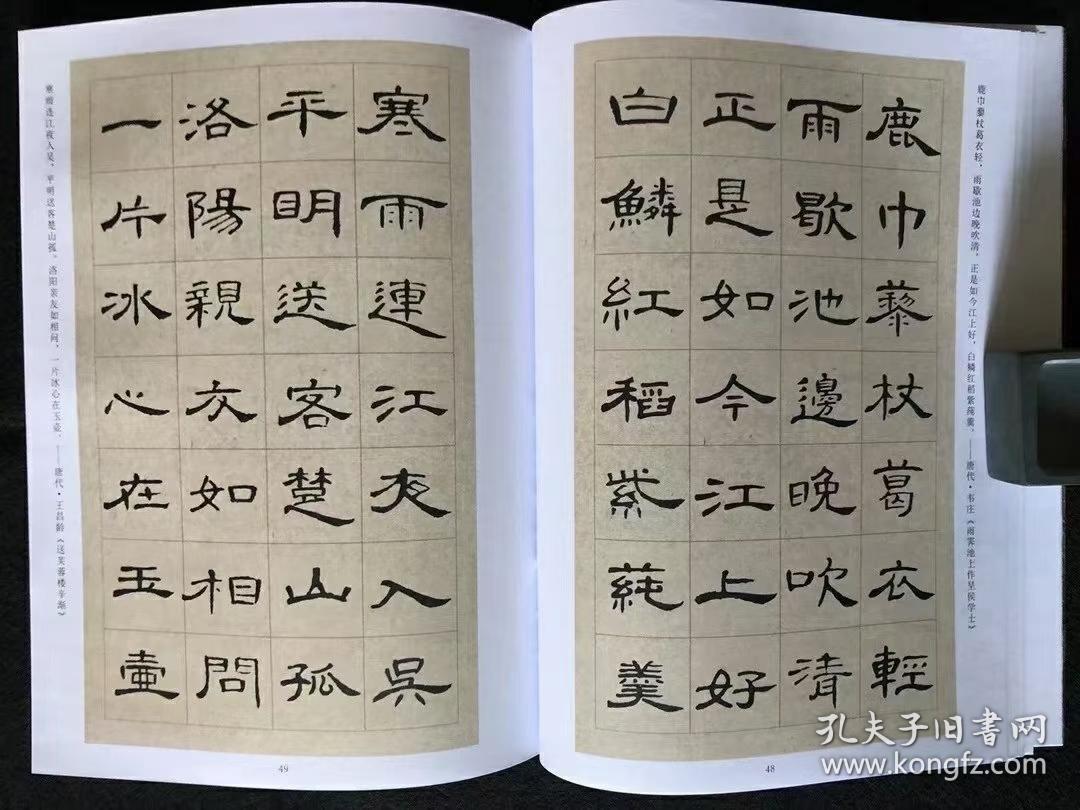 鹿巾藜杖葛衣輕
雨歇池邊晚吹清
正是如今江上好
白鱗紅稻紫蒓羹
鹿巾藜杖葛衣轻，雨歇池边晚吹清。正是如今江上好，白鳞红稻紫莼羹。——唐代·韦庄《雨霁池上作呈侯学士》
48
寒雨連江夜入吳
平明送客楚山孤
洛陽親友如相問
一片冰心在玉壷
寒雨连江夜入吴，平明送客楚山孤。洛阳亲友如相问，一片冰心在玉壶。——唐代·王昌龄《送芙蓉楼辛渐》
49
孔夫子旧书网
www.kongfz.com